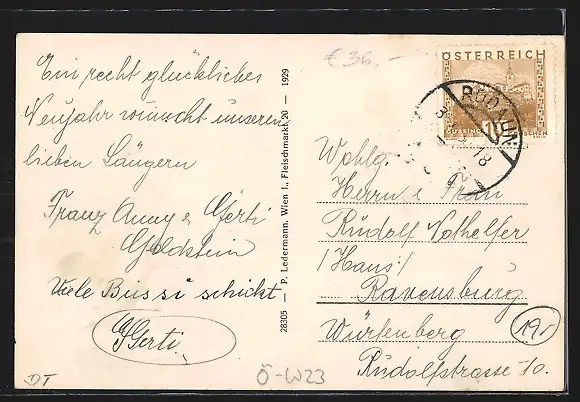 Ein recht glückliches
Neujahr wünscht unseren
lieben Sängern
Franz Anny & Gerti
Goldstein
Viele Bussi schickt
Gerti
DT
28305 — P. Ledermann, Wien I., Fleischmarkt 20 — 1929
€ 36.-
ÖSTERREICH
RODAUN
18
GÜSSING
Wohlg.
Herrn & Frau
Rudolf Nothelfer
/Haus/
Ravensburg
Würtenberg
Rudolfstrasse 10.
19
Ö-W23